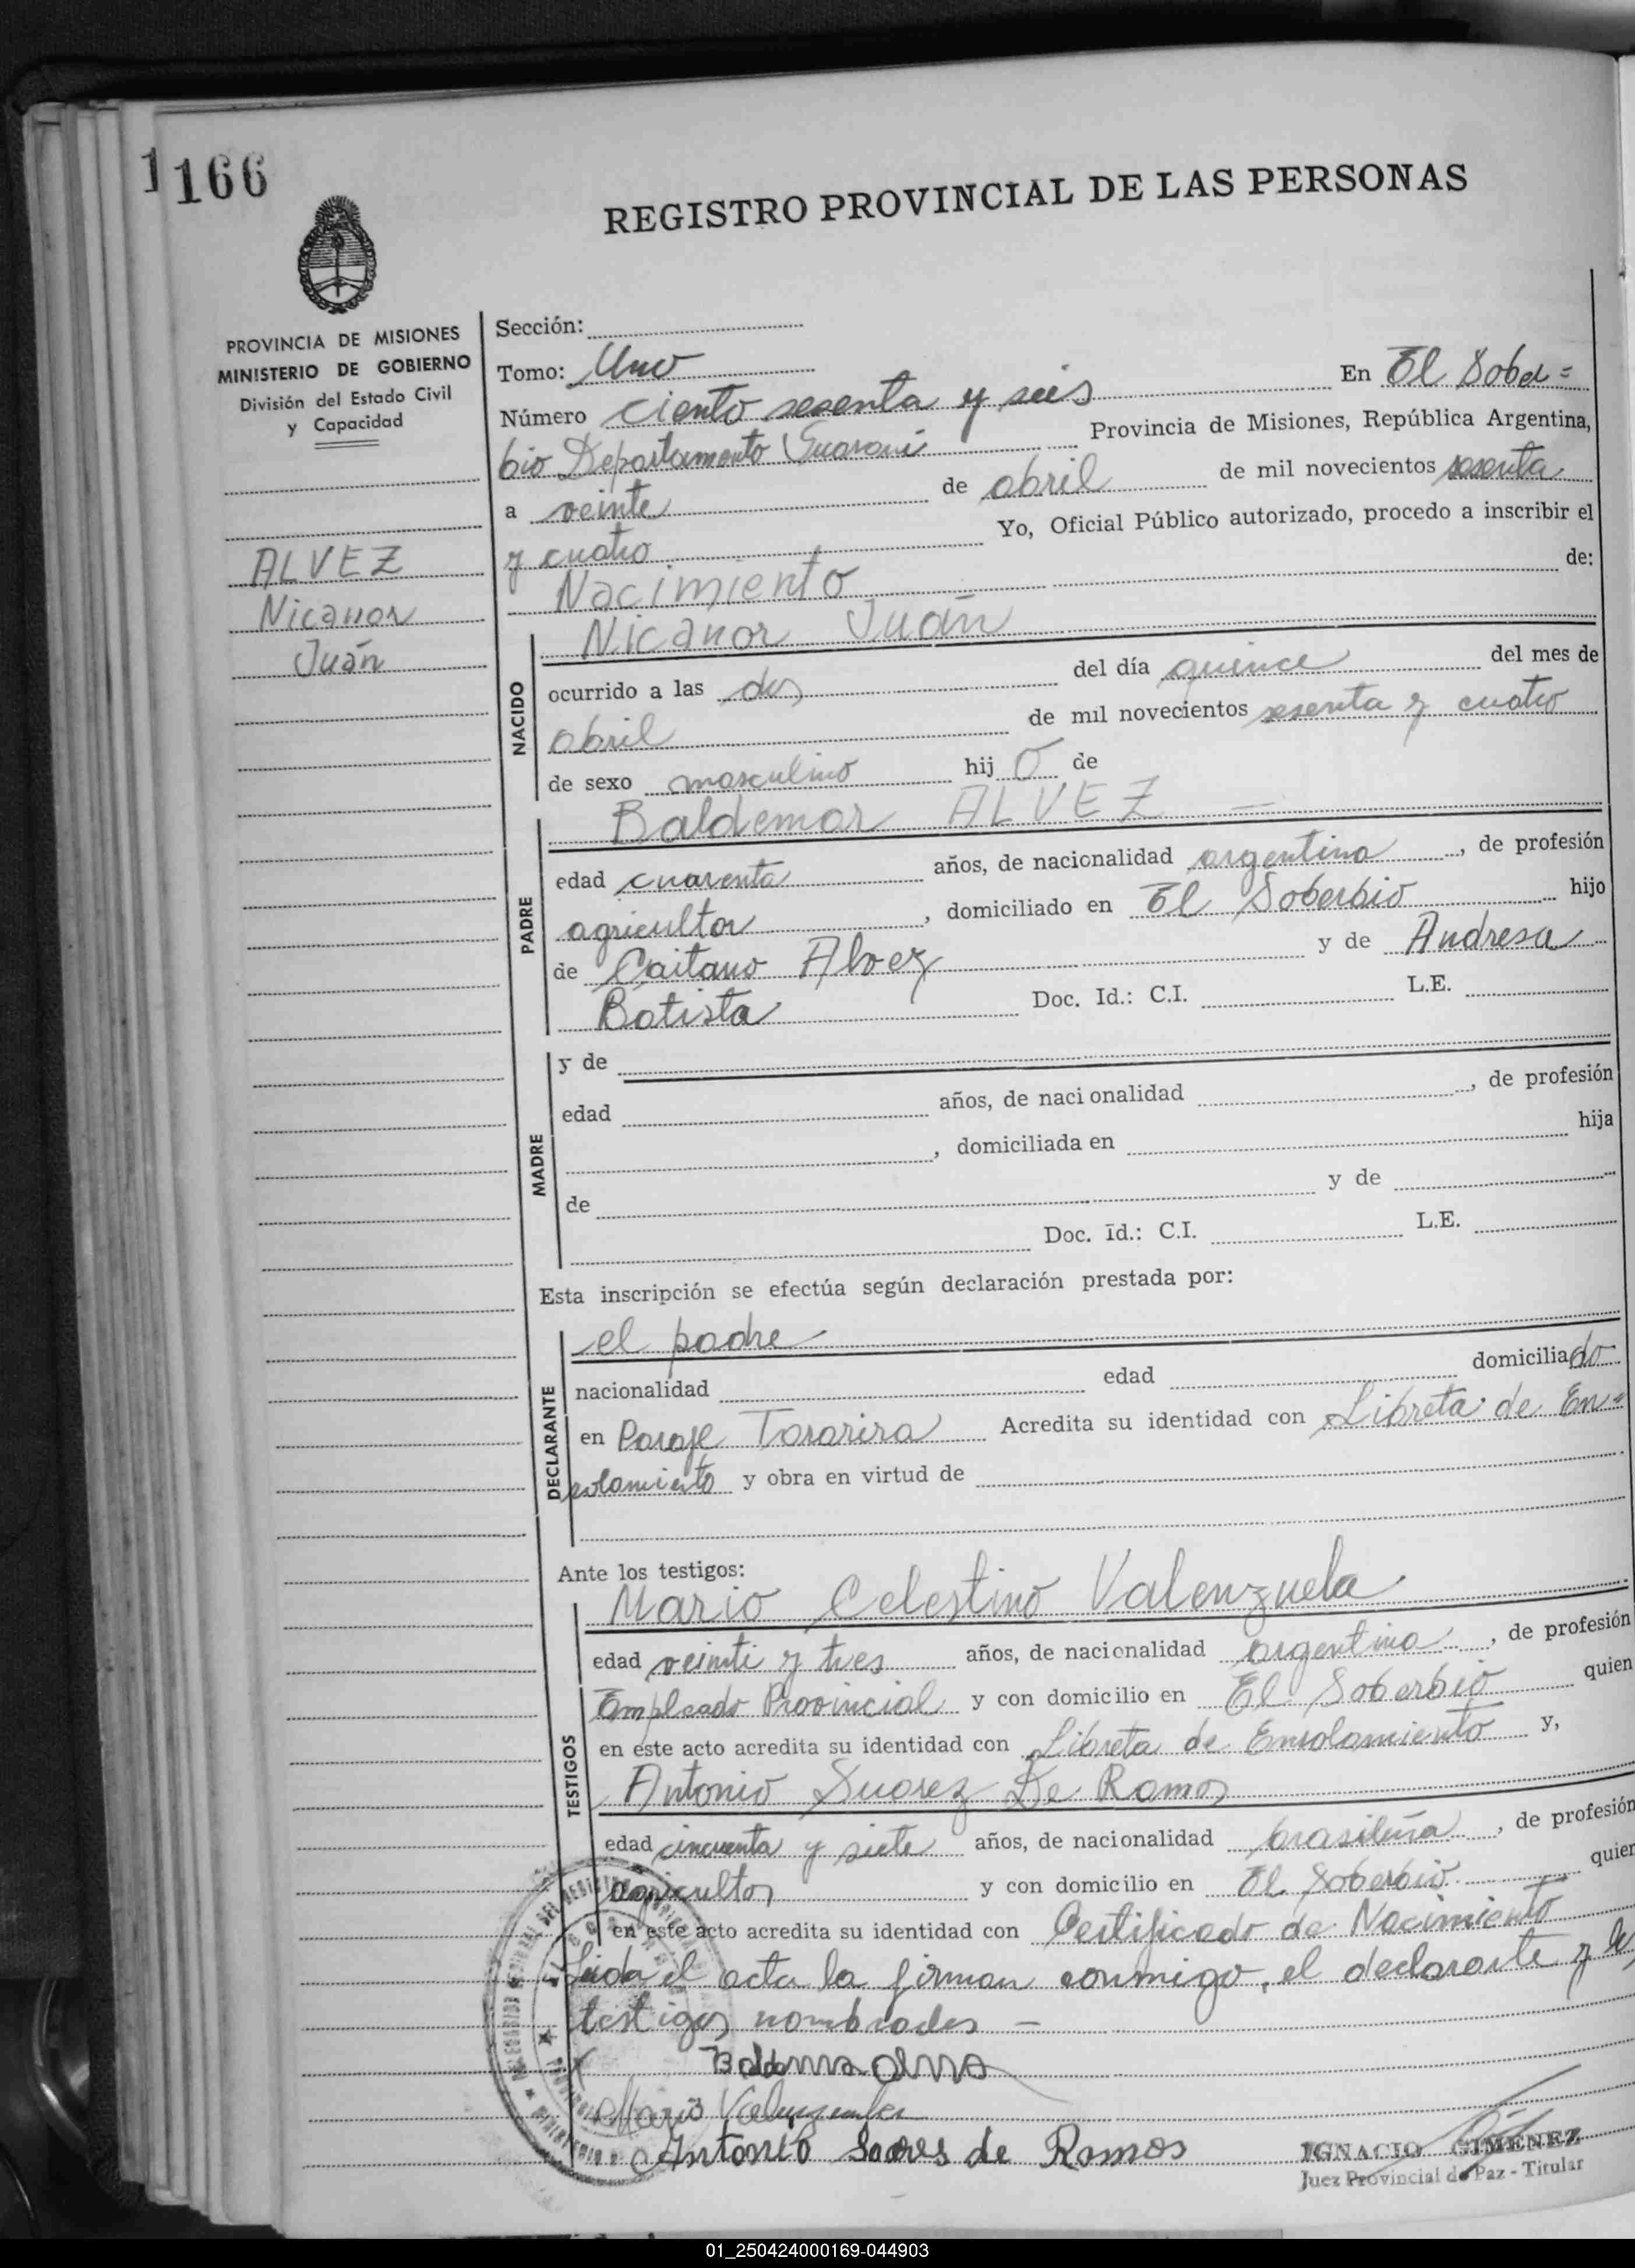 1166
REGISTRO PROVINCIAL DE LAS PERSONAS
PROVINCIA DE MISIONES
MINISTERIO DE GOBIERNO
División del Estado Civil
y Capacidad
ALVEZ
Nicanor
Juán
Sección:
Tomo: Uno
Número ciento sesenta y seis En El Sober=
bio Departamento Guaraní Provincia de Misiones, República Argentina,
a veinte de abril de mil novecientos sesenta
y cuatro Yo, Oficial Público autorizado, procedo a inscribir el
Nacimiento de:
NACIDO
Nicanor Juán
ocurrido a las dos del día quince del mes de
abril de mil novecientos sesenta y cuatro
de sexo masculino hij o de
PADRE
Baldemar ALVEZ —
edad cuarenta años, de nacionalidad argentina, de profesión
agricultor, domiciliado en El Soberbio hijo
de Caitano Alvez y de Andresa
Batista Doc. Id.: C.I. L.E.
MADRE
y de
edad años, de naci onalidad , de profesión
, domiciliada en hija
de y de
Doc. Id.: C.I. L.E.
Esta inscripción se efectúa según declaración prestada por:
DECLARANTE
el padre
nacionalidad edad domiciliado
en Paraje Tararira Acredita su identidad con Libreta de En=
rolamiento y obra en virtud de
Ante los testigos:
TESTIGOS
Mario Celestino Valenzuela
edad veinti y tres años, de nacionalidad argentina, de profesión
Empleado Provincial y con domicilio en El Soberbio quien
en este acto acredita su identidad con Libreta de Enrolamiento y,
Antonio Suarez De Ramos
edad cincuenta y siete años, de nacionalidad brasileña, de profesión
agricultor y con domicilio en El Soberbio quien
en este acto acredita su identidad con Certificado de Nacimiento
Leida el acta la firman conmigo, el declarante y los
testigos nombrados —
Mario Valenzuela
Antonio Soares de Ramos
IGNACIO GIMENEZ
Juez Provincial de Paz - Titular
01_250424000169-044903